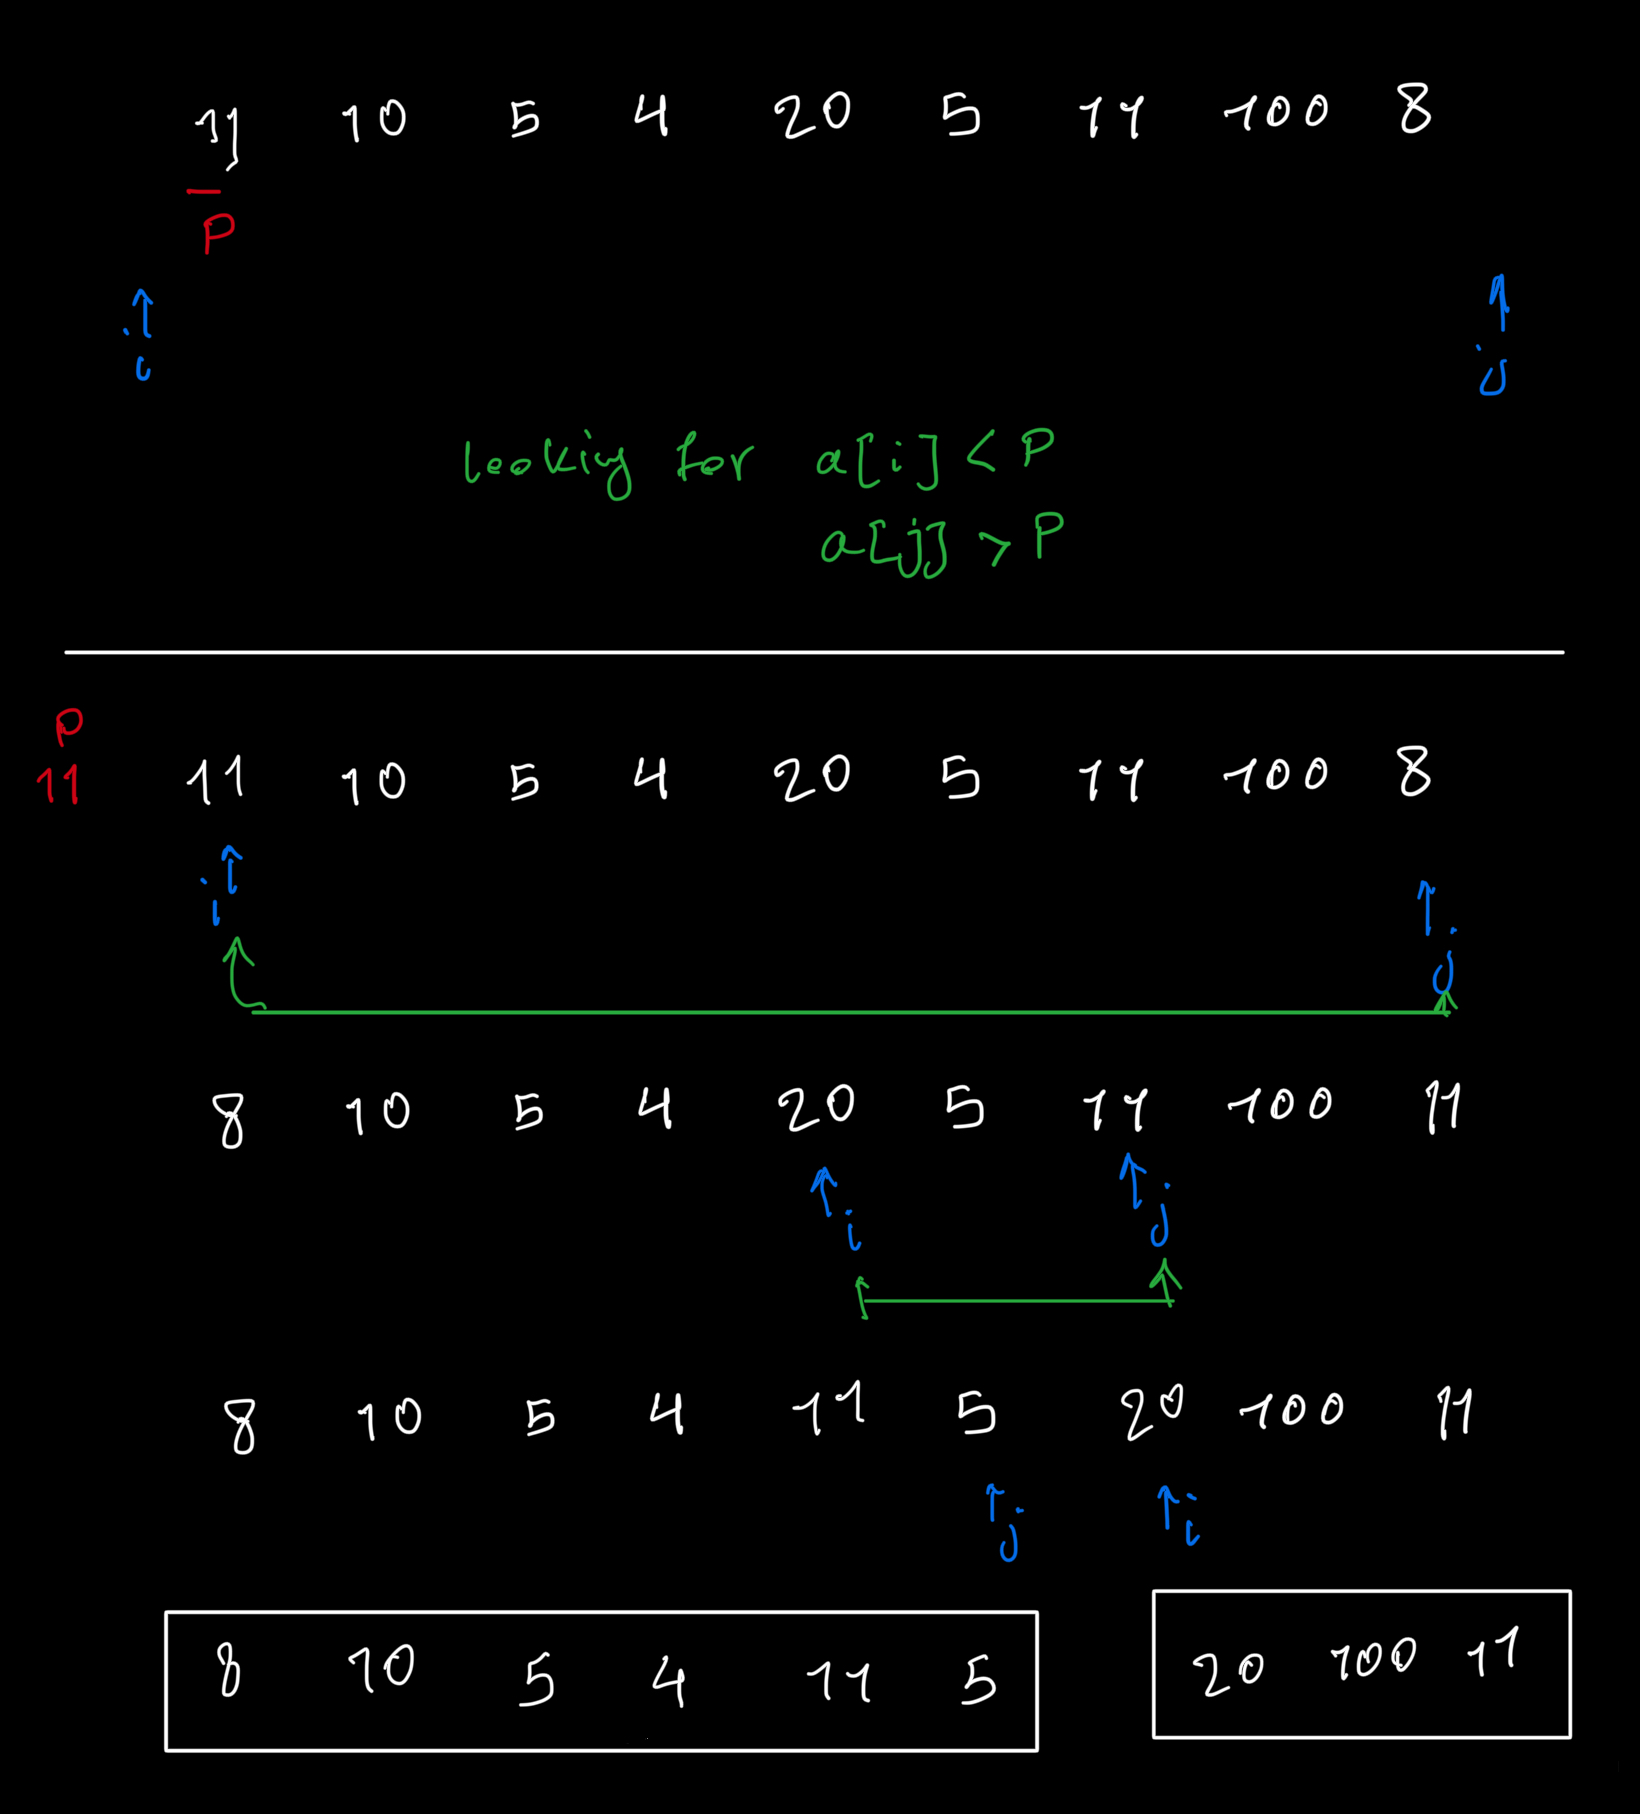 11 10 5 4 20 5 11 100 8
P
i j
looking for a[i] < P
a[j] > P
P
11 11 10 5 4 20 5 11 100 8
i j
8 10 5 4 20 5 11 100 11
i j
8 10 5 4 11 5 20 100 11
j i
8 10 5 4 11 5 20 100 11